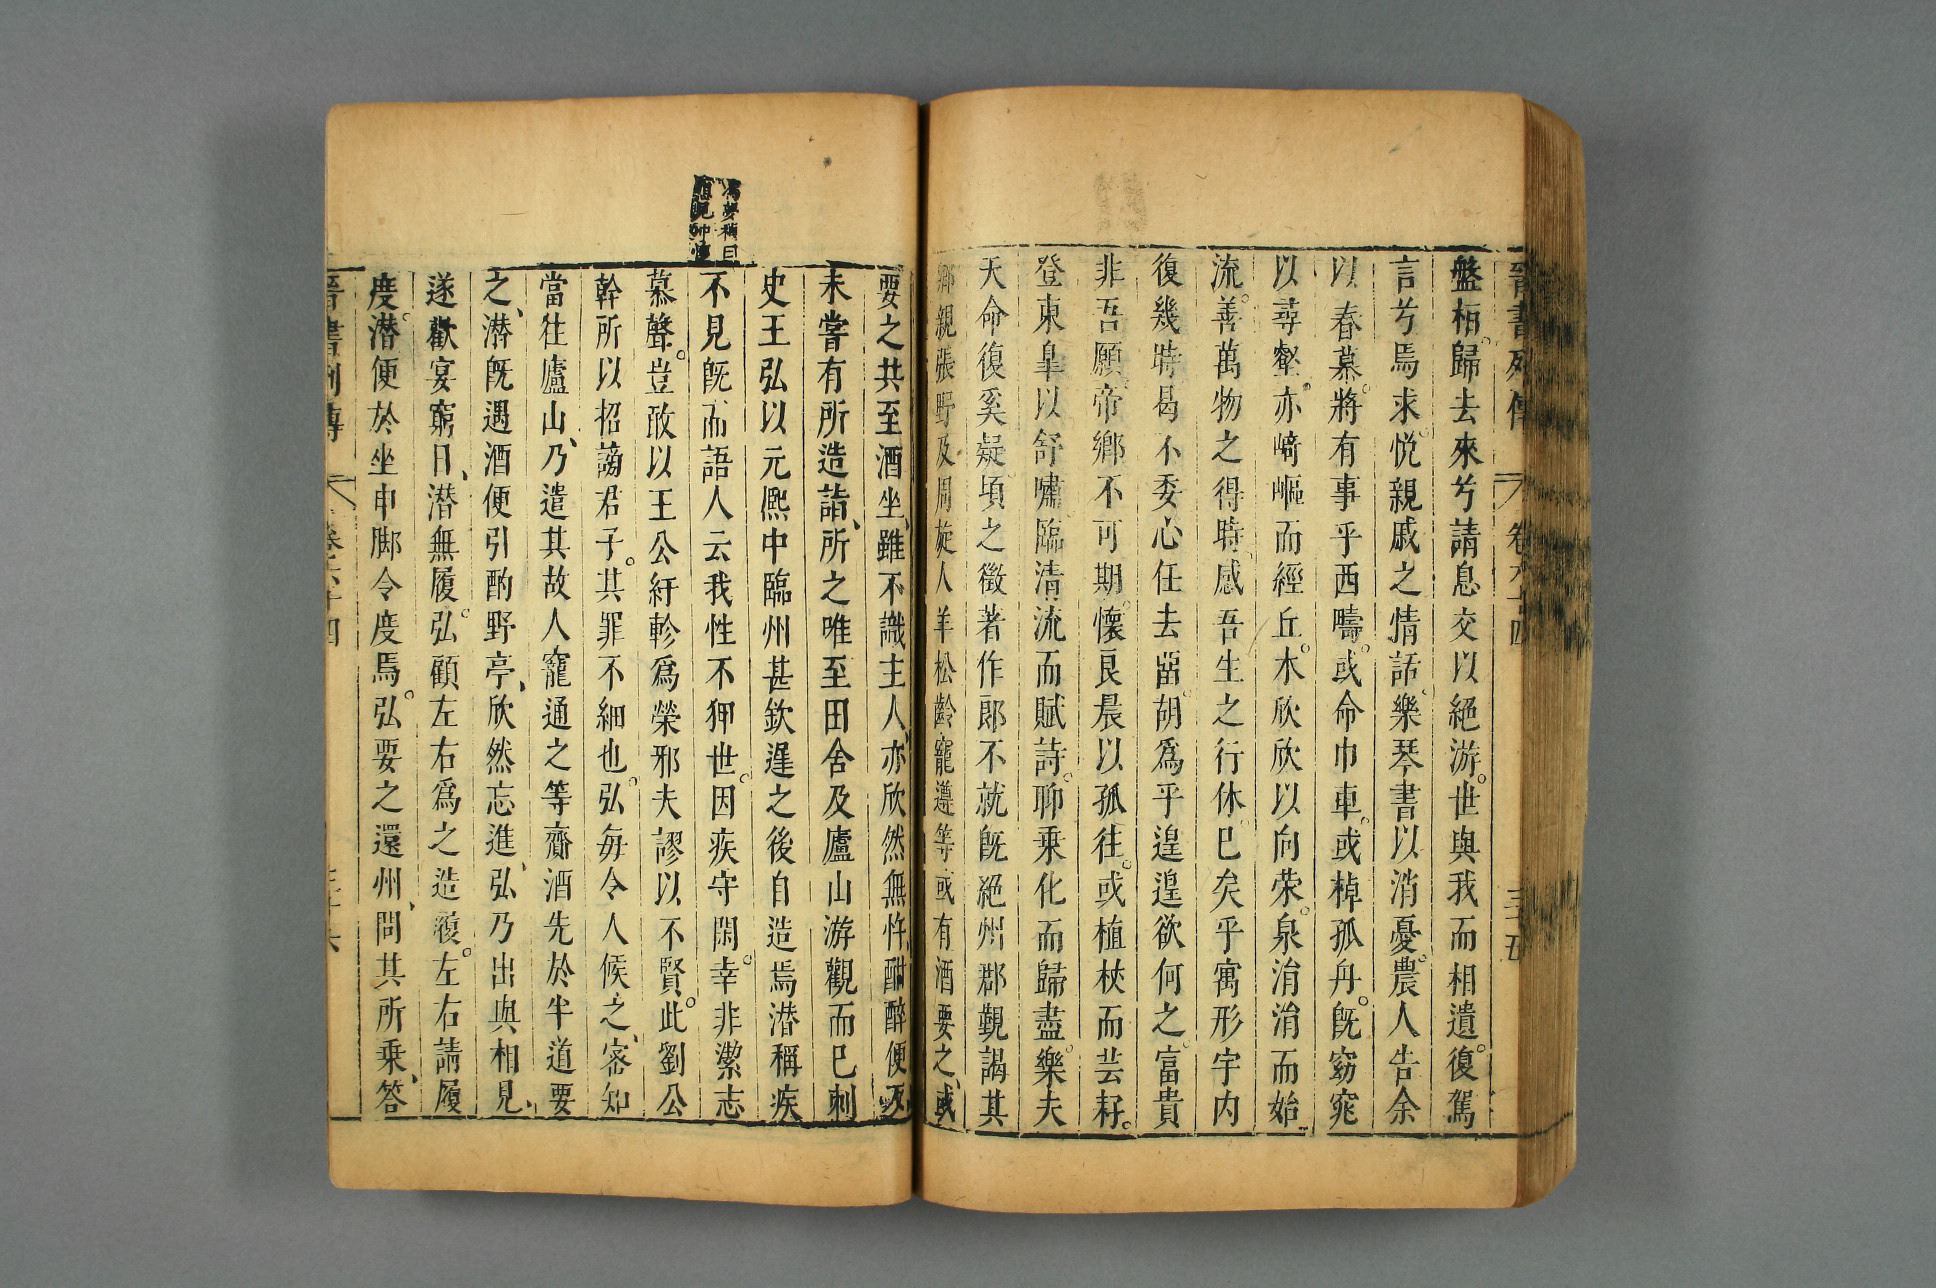 晉書列傳 卷六十四 三十五
盤栢。歸去來兮請息交以絕游。世與我而相遺。復駕
言兮焉求。悅親戚之情話。樂琴書以消憂。農人告余
以春暮。將有事乎西疇。或命巾車。或棹孤舟。旣窈窕
以尋壑。亦崎嶇而經丘。木欣欣以向荣。泉涓涓而始
流。善萬物之得時。感吾生之行休。已矣乎寓形宇内
復幾時曷不委心任去留。胡爲乎遑遑欲何之。富貴
非吾願。帝鄉不可期。懷良晨以孤往。或植杖而芸耔。
登東皐以舒嘯。臨清流而賦詩。聊乘化而歸盡。樂夫
天命復奚疑。頃之徵著作郎不就旣絕州郡覲謁其
鄉親張野及周旋人羊松齡寵遵等或有酒要之、或
要之共至酒坐、雖不識主人、亦欣然無忤酣醉便反
未嘗有所造詣、所之唯至田舍及廬山游觀而已刺
史王弘以元熙中臨州甚欽遲之後自造焉潛稱疾
不見旣而語人云我性不狎世。因疾守閑。幸非潔志
慕聲。豈敢以王公紆軫爲榮邪夫謬以不賢。此劉公
幹所以招謗君子。其罪不細也。弘每令人候之、密知
當往廬山、乃遣其故人寵通之等齎酒先於半道要
之、潛旣遇酒便引酌野亭、欣然忘進、弘乃出與相見、
遂歡宴窮日、潛無履。弘顧左右爲之造履。左右請履
度。潛便於坐申脚令度焉。弘要之還州、問其所乘、答
晉書列傳 卷六十四 三十六
馮夢禎曰